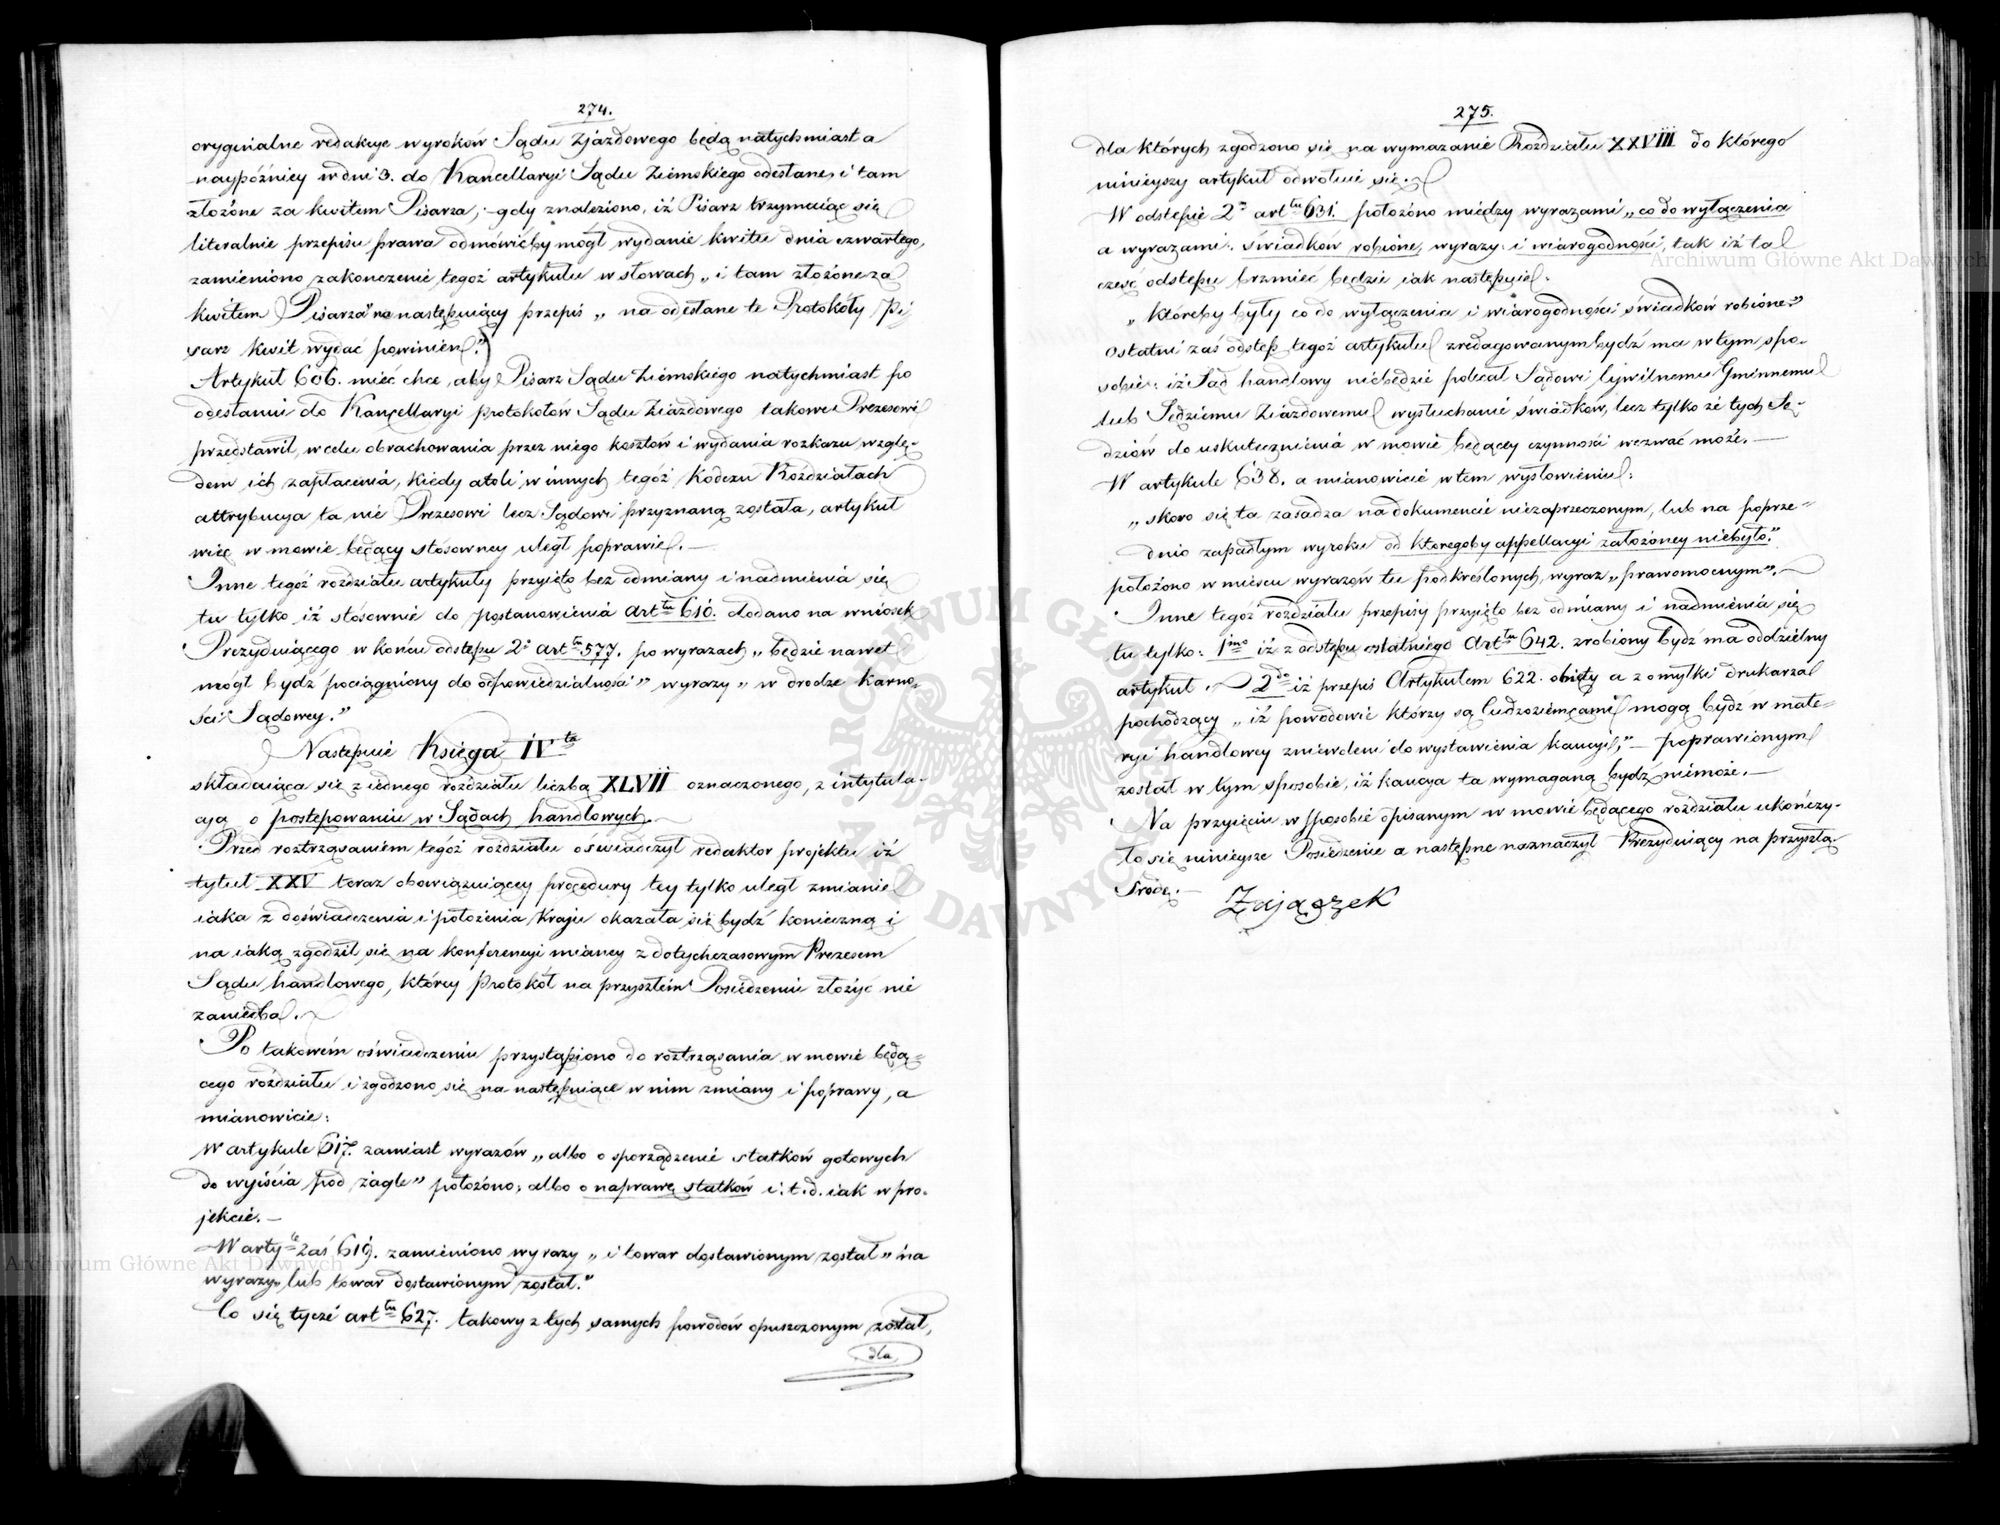 274.
oryginalne redakcye wyroków Sądu Zjazdowego będą natychmiast a
naypóźniey w dni 3. do Kancellaryi Sądu Ziemskiego odesłane, i tam
złożone za kwitem Pisarza, gdy znaleziono, iż Pisarz trzymaiąc się
literalnie przepisu prawa odmówićby mógł wydanie kwitu dnia czwartego,
zamieniono zakonczenie tegoż artykułu w słowach „i tam złożone za
kwitem Pisarza" na następuiący przepis „na odesłane te Protokóły Pi-
sarz kwit wydać powinien."
Artykuł 606. mieć chce, aby Pisarz Sądu Ziemskiego natychmiast po
odesłaniu do Kancellaryi protokołów Sądu Ziazdowego takowe Prezesowi
przedstawił, w celu obrachowania przez niego kosztów i wydania rozkazu wzglę-
dem ich zapłacenia, kiedy atoli w innych tegoż Kodexu Rozdziałach
attrybucya ta nie Prezesowi lecz Sądowi przyznaną została, artykuł
więc w mowie będący stósowney uległ poprawie.—
Inne tegoż rozdziału artykuły przyięto bez odmiany i nadmienia się
tu tylko iż stósownie do postanowienia artłu 610. dodano na wniosek
Prezyduiącego w końcu odstępu 2o artłu 577. po wyrazach „będzie nawet
mógł bydź pociągniony do odpowiedzialności" wyrazy „w drodze karno-
ści Sądowey."
Następuie Księga IVta
składaiąca się z iednego rozdziału liczbą XLVII oznaczonego, z intytula-
cyą o postępowaniu w Sądach handlowych.
Przed roztrząsaniem tegoż rozdziału oświadczył redaktor projektu iż
tytuł XXV teraz obowiązuiącey procedury tey tylko uległ zmianie
iaka z doświadczenia i położenia Kraju okazała się bydź konieczną i
na iaką zgodził się na konferencyi mianey z dotychczasowym Prezesem
Sądu handlowego, którey Protokół na przyszłem Posiedzeniu złożyć nie
zaniedba.
Po takowém oświadczeniu przystąpiono do roztrząsania w mowie będą-
cego rozdziału i zgodzono się na następuiące w nim zmiany i poprawy, a
mianowicie:
W artykule 617. zamiast wyrazów „albo o sporządzenie statków gotowych
do wyjścia pod żagle" położono; albo o naprawę statków i. t. d. iak w pro-
jekcie.—
W artyle zaś 619. zamieniono wyrazy „i towar dostawionym został" na
wyrazy „lub towar dostawionym został."
Co się tycze artłu 627. takowy z tych samych powodów opuszczonym został,
dla
275.
dla których zgodzono się na wymazanie Rozdziału XXVIII do którego
ninieyszy artykuł odwołuie się.
W odstępie 2m artłu 631. położono między wyrazami „co do wyłączenia
a wyrazami: świadków robione, wyrazy: i wiarogodności, tak iż ta
część odstępu brzmieć będzie iak następuie:
„któreby były co do wyłączenia i wiarogodności świadków robione"
Ostatni zaś odstęp tegoż artykułu zredagowanym bydź ma w tym spo-
sobie: iż Sąd handlowy niebędzie polecał Sądowi Cywilnemu Gminnemu
lub Sędziemu Ziazdowemu wysłuchanie świadków, lecz tylko że tych Sę-
dziów do uskutecznienia w mowie będącey czynności wezwać może.—
W artykule 638. a mianowicie w tem wysłowieniu:
„skoro się ta zasadza na dokumencie niezaprzeczonym, lub na poprze-
dnio zapadłym wyroku od któregoby appellacyi założoney niebyło."
położono w mieyscu wyrazów tu podkreślonych, wyraz „prawomocnym".
Inne tegoż rozdziału przepisy przyięto bez odmiany i nadmienia się
tu tylko: 1mo iż z odstępu ostatniego Artłu 642. zrobiony bydź ma oddzielny
artykuł. 2do iż przepis Artykułem 622. obięty a z omyłki drukarza
pochodzący „iż powodowie którzy są Cudzoziemcami mogą bydź w mate-
ryi handlowey zniewoleni do wystawienia kaucyi," — poprawionym
został w tym sposobie, iż kaucya ta wymaganą bydź niemoże.—
Na przyięciu w sposobie opisanym w mowie będącego rozdziału ukończy-
ło się ninieysze Posiedzenie a następne naznaczył Prezyduiący na przyszłą
Srodę.—
Zajączek
Archiwum Główne Akt Dawnych
Archiwum Główne Akt Dawnych
ARCHIWUM GŁÓWNE AKT DAWNYCH